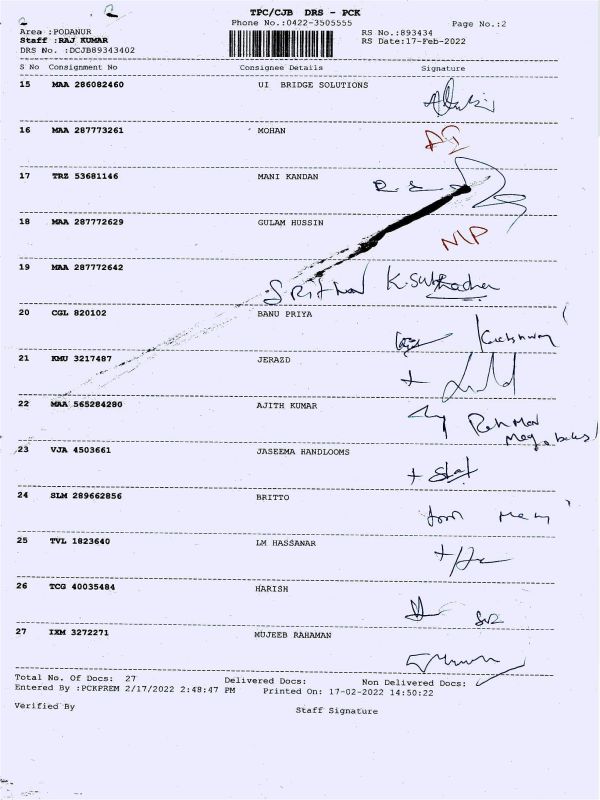 2
TPC/CJB DRS - PCK
Phone No.:0422-3505555
Page No.:2
Area :PODANUR
Staff :RAJ KUMAR
DRS No. :DCJB89343402
RS No.:893434
RS Date:17-Feb-2022
S No Consignment No Consignee Details Signature
15 MAA 286082460 UI BRIDGE SOLUTIONS
16 MAA 287773261 MOHAN
17 TRZ 53681146 MANI KANDAN
18 MAA 287772629 GULAM HUSSIN
NLP
19 MAA 287772642
20 CGL 820102 BANU PRIYA
21 KMU 3217487 JERAZD
22 MAA 565284280 AJITH KUMAR
23 VJA 4503661 JASEEMA HANDLOOMS
24 SLM 289662856 BRITTO
25 TVL 1823640 LM HASSANAR
26 TCG 40035484 HARISH
27 IXM 3272271 MUJEEB RAHAMAN
Total No. Of Docs: 27 Delivered Docs: Non Delivered Docs:
Entered By :PCKPREM 2/17/2022 2:48:47 PM Printed On: 17-02-2022 14:50:22
Verified By Staff Signature